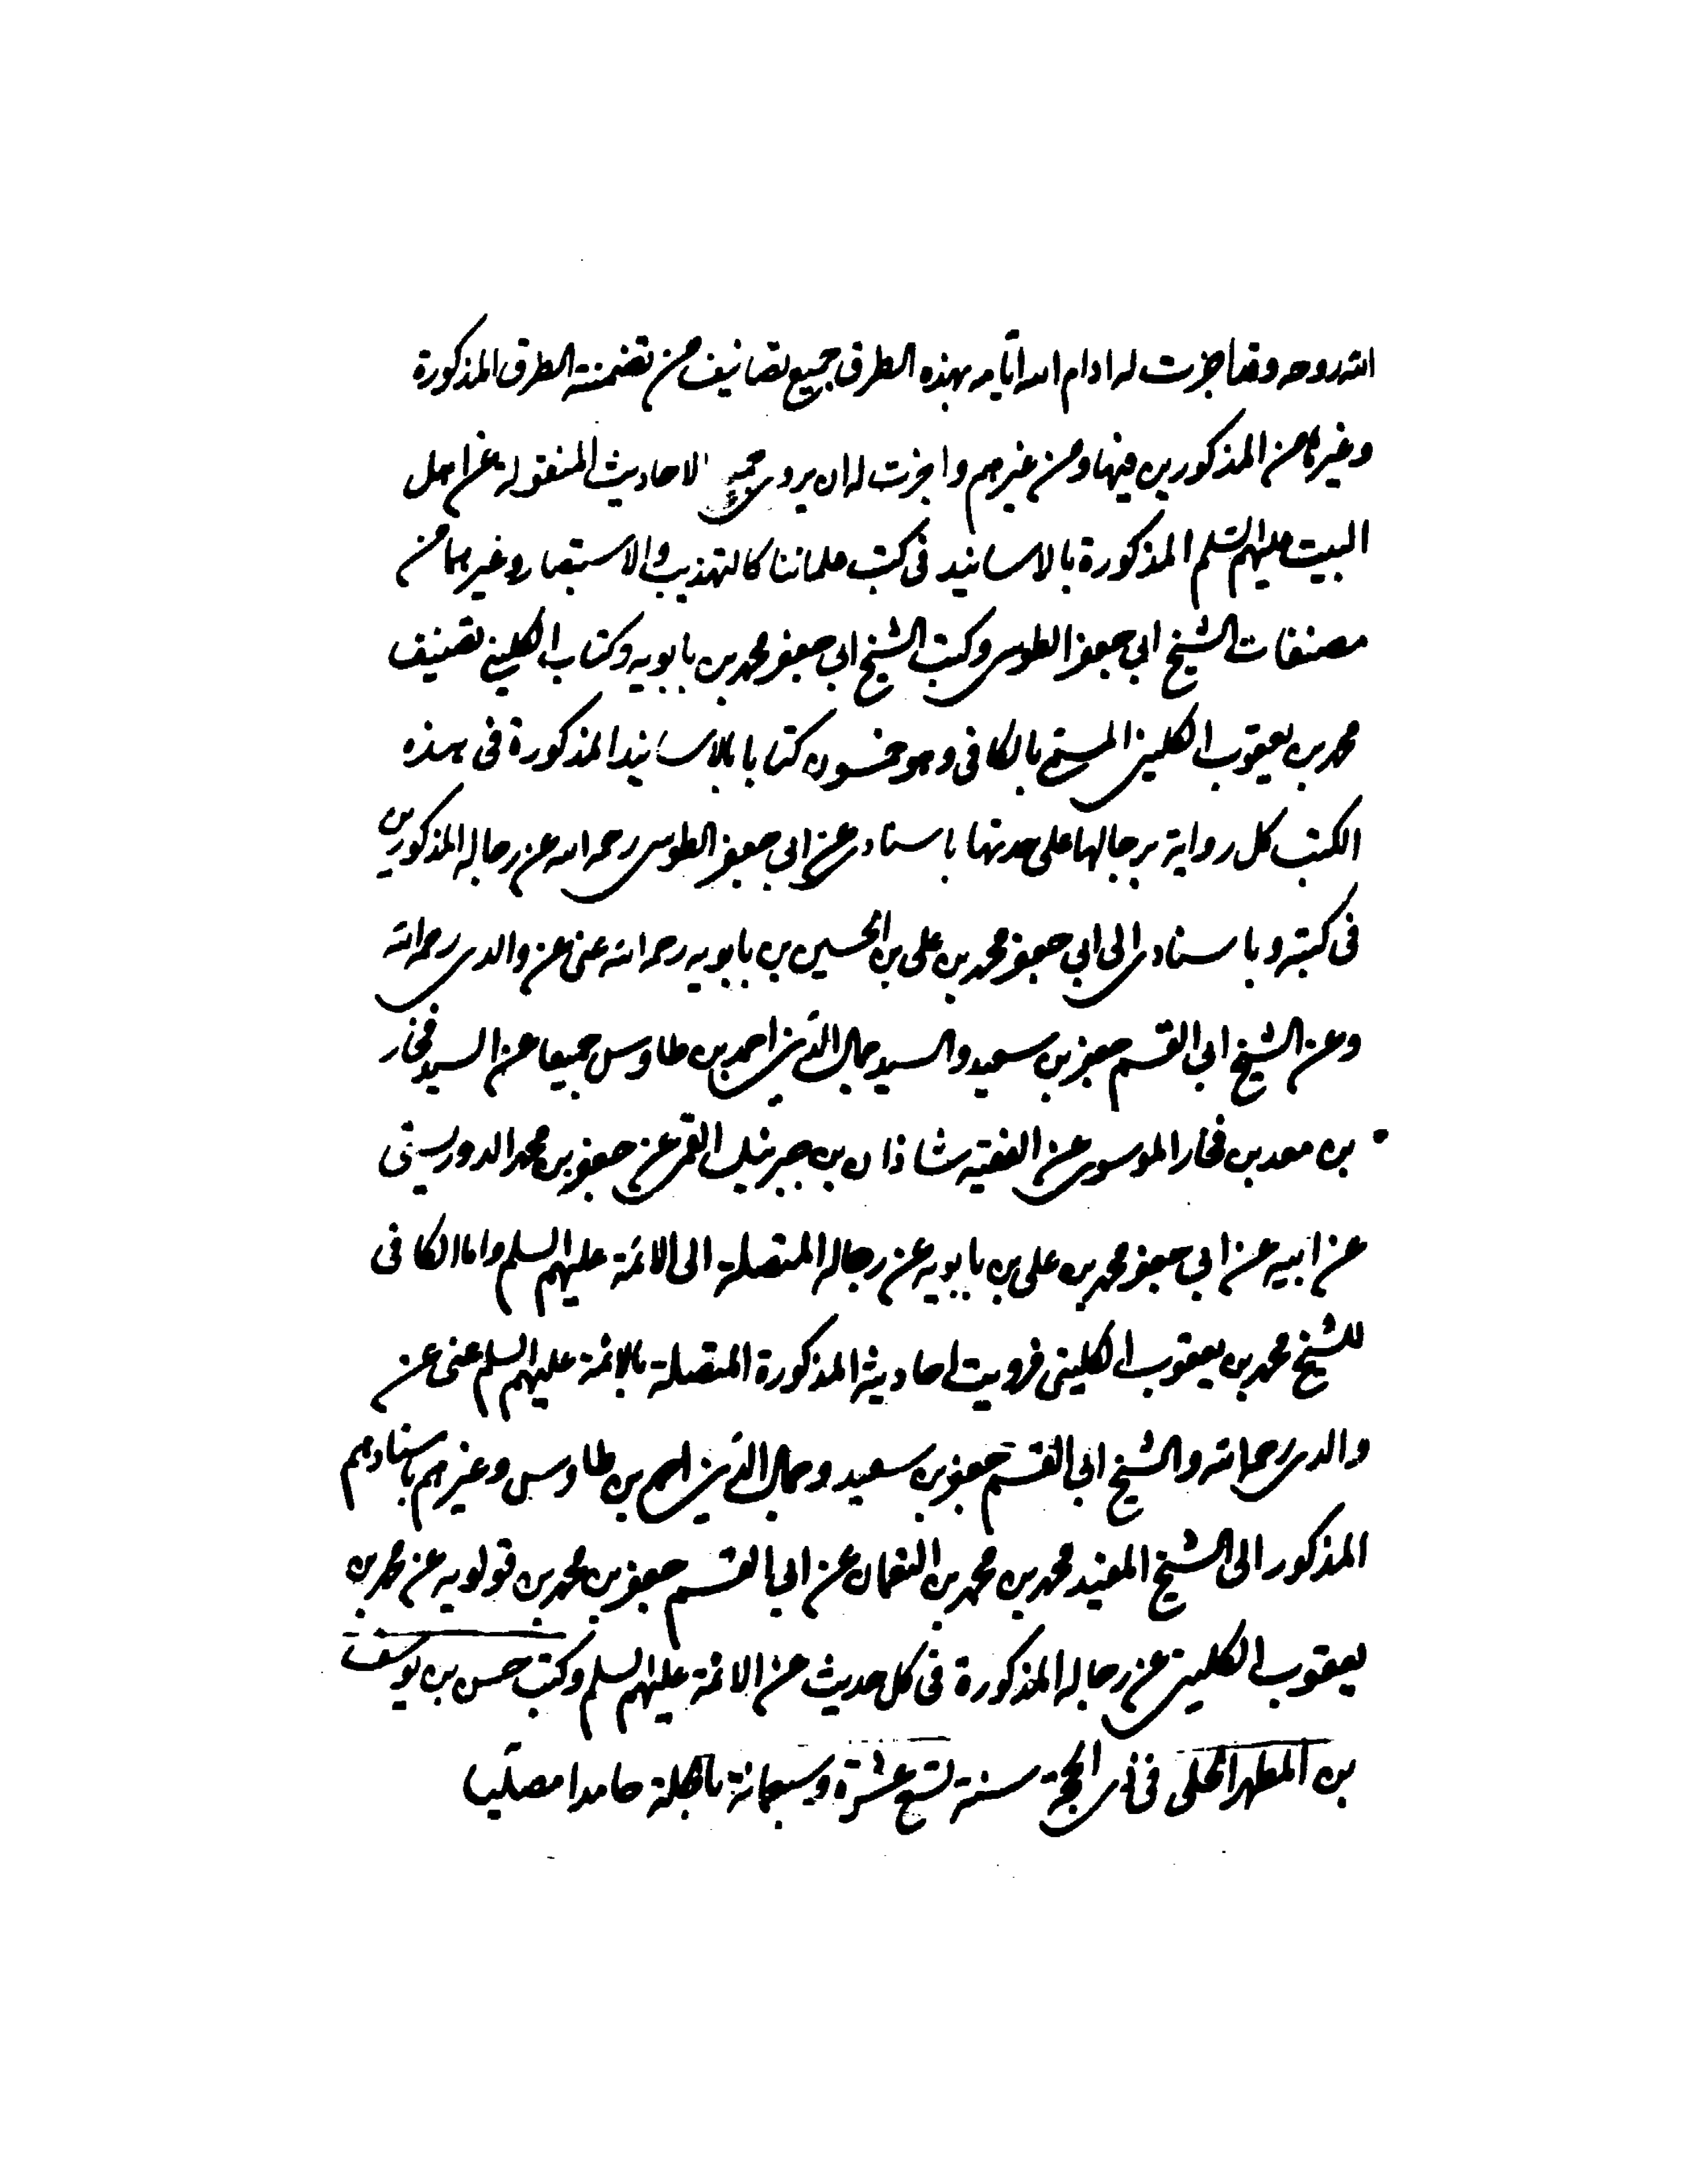 الله روحه وقد اجزت له ادام الله ايامه بهذه الطرق جميع تصانيف من تضمنته الطرق المذكورة
وغيرها من المذكورين فيها ومن غيرهم واجزت له ان يروى جميع الاحاديث المنقولة عن اهل
البيت عليهم السلم المذكورة بالاسانيد فى كتب علمائنا كالتهذيب والاستبصار وغيرهما من
مصنفات الشيخ ابى جعفر الطوسى وكتب الشيخ ابى جعفر محمد بن بابويه وكتاب الكلينى تصنيف
محمد بن يعقوب الكلينى المسمى بالكافى وهو خمسون كتابا بالاسانيد المذكورة فى هذه
الكتب كل رواية برجالها على حدتها باسنادى عن ابى جعفر الطوسى رحمه الله عن رجاله المذكورين
فى كتبه وباسنادى الى ابى جعفر محمد بن على بن الحسين بن بابويه رحمه الله عنى عن والدى رحمه الله
وعن الشيخ ابى القسم جعفر بن سعيد والسيد جمال الدين احمد بن طاوس جميعا عن السيد فخار
بن معد بن فخار الموسوى عن الفقيه شاذان بن جبرئيل القمى عن جعفر بن محمد الدوريستى
عن ابيه عن ابى جعفر محمد بن على بن بابويه عن رجاله المتصلة الى الائمة عليهم السلم واما الكافى
للشيخ محمد بن يعقوب الكلينى فرويت احاديثه المذكورة المتصلة بالائمة عليهم السلم عنى عن
والدى رحمه الله والشيخ ابى القسم جعفر بن سعيد وجمال الدين احمد بن طاوس وغيرهم باسنادهم
المذكور الى الشيخ المفيد محمد بن محمد بن النعمان عن ابى القسم جعفر بن محمد بن قولويه عن محمد بن
يعقوب الكلينى عن رجاله المذكورة فى كل حديث عن الائمة عليهم السلم وكتب حسن بن يوسف
بن المطهر الحلى فى ذى الحجة سنة تسع عشرة وسبعمائة بالحلة حامدا مصليا